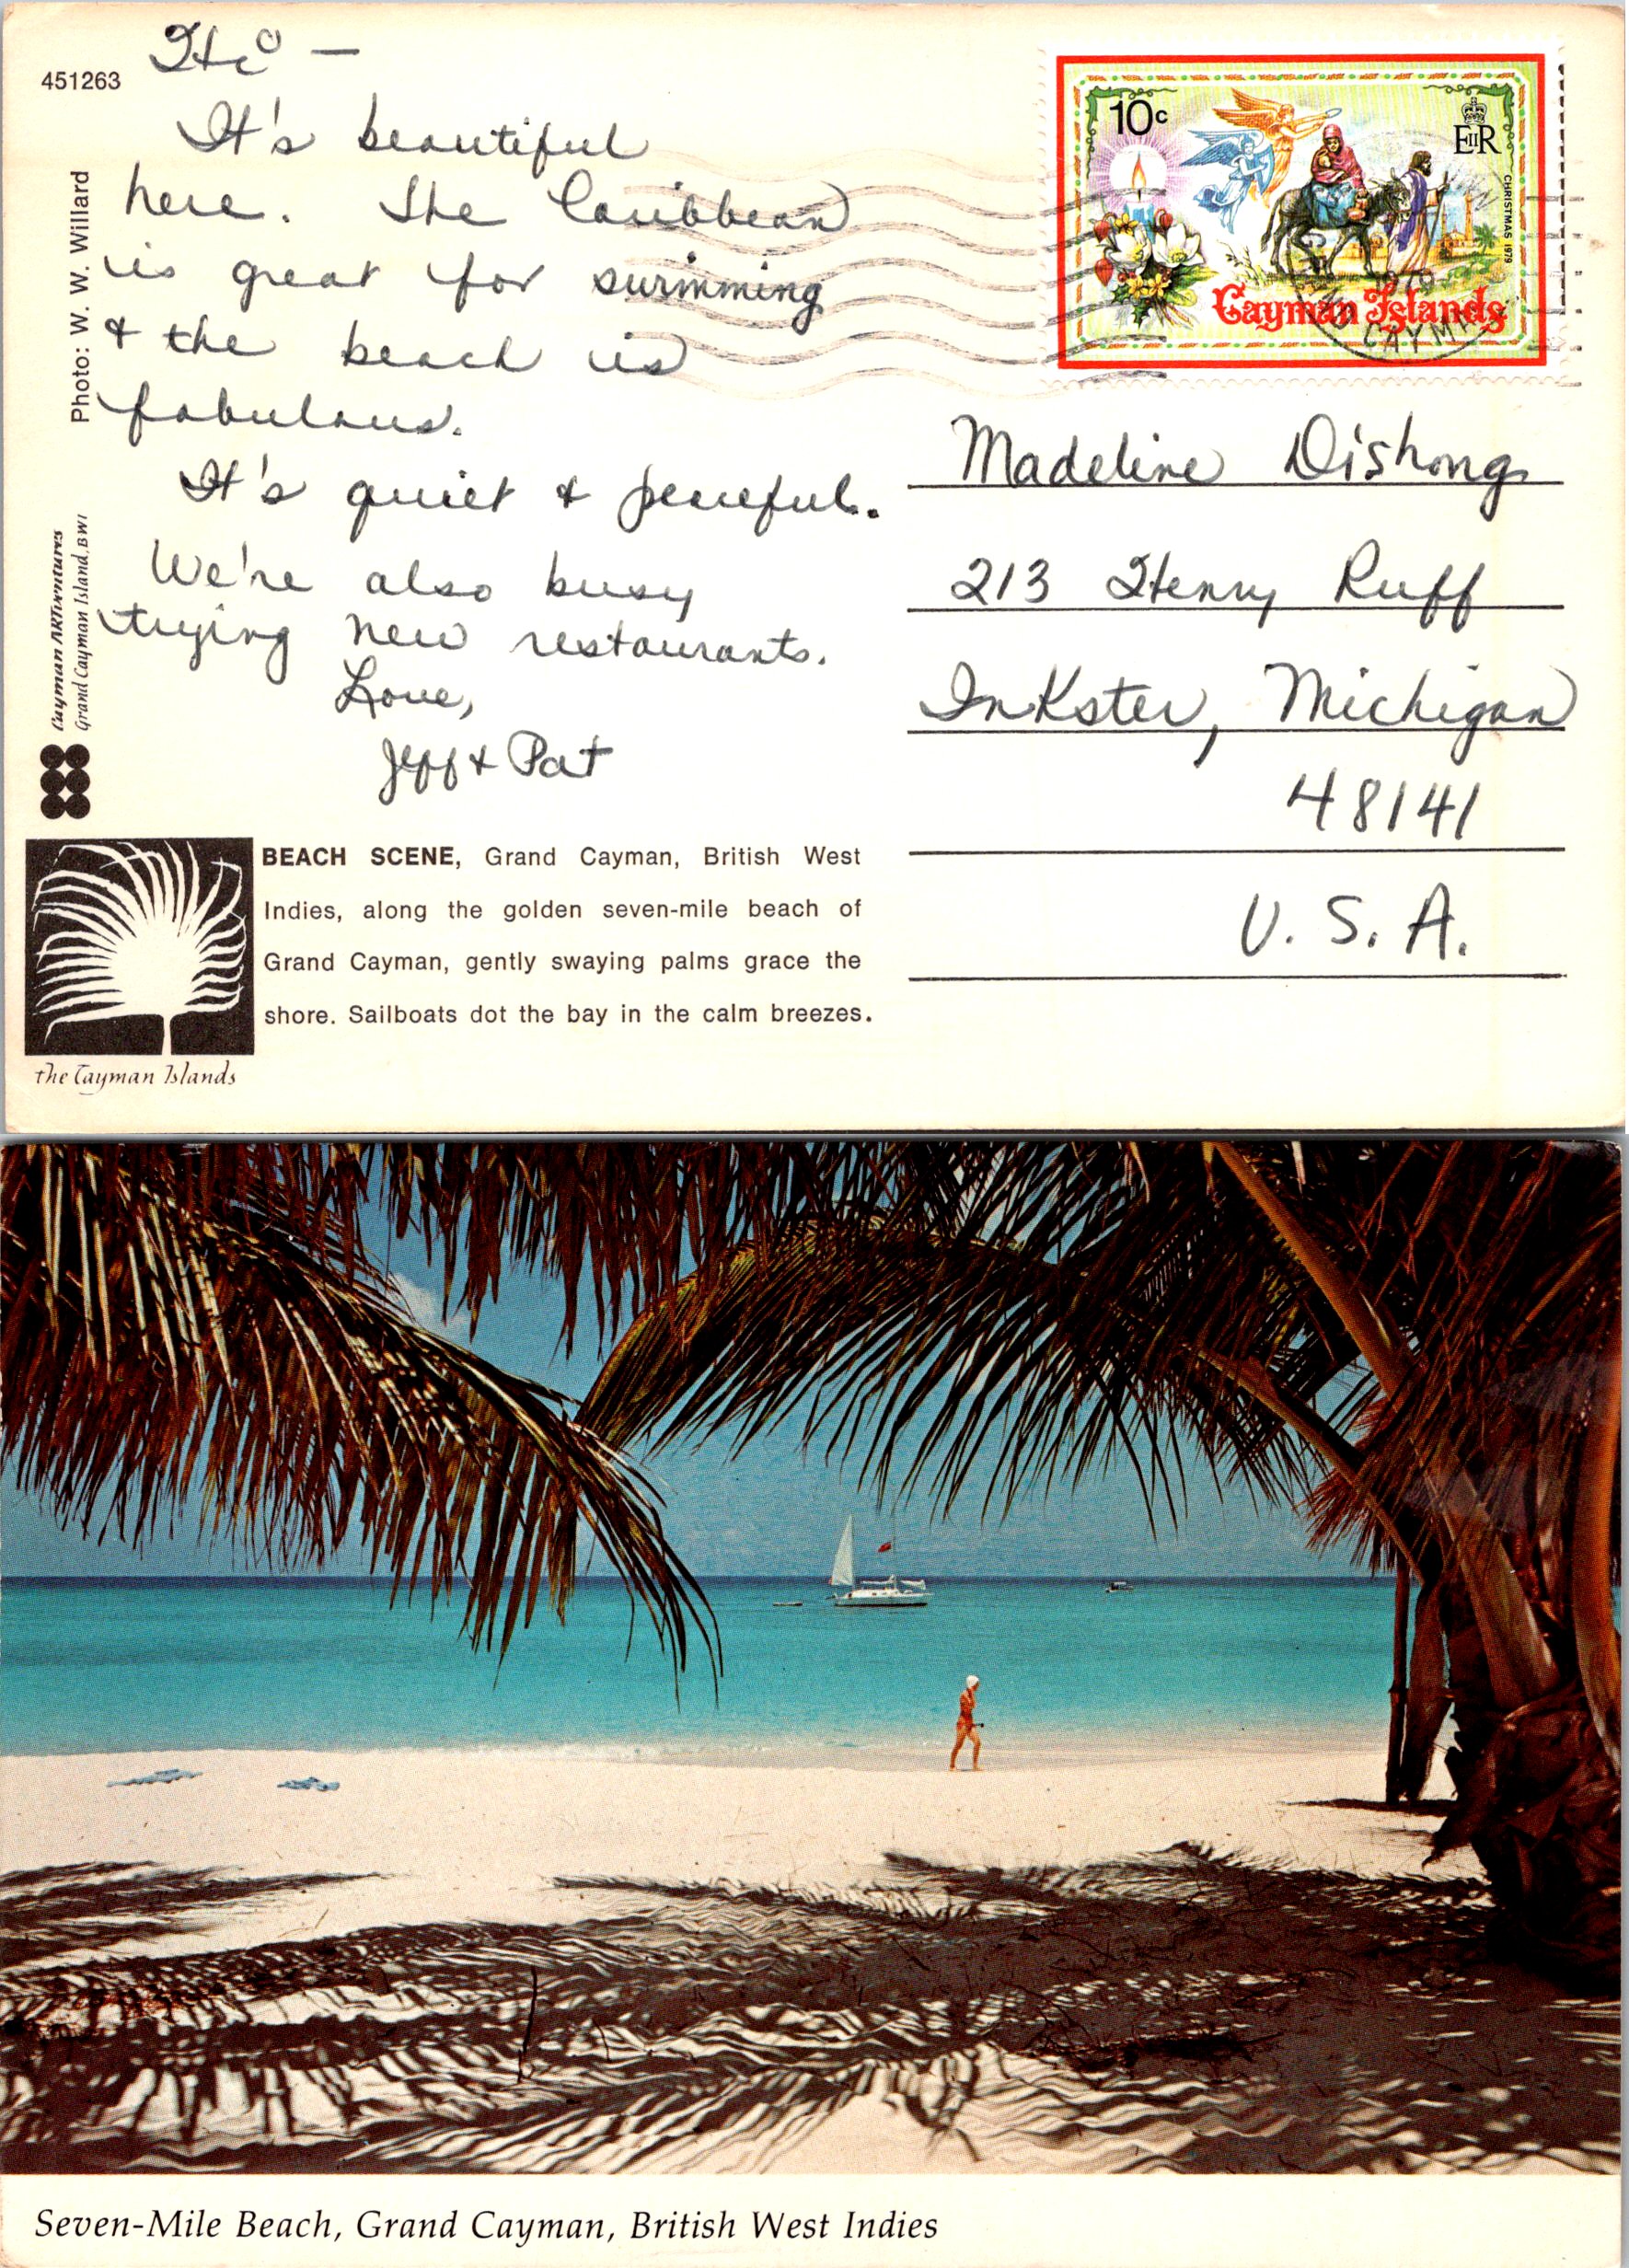 451263
Hi —
It's beautiful
here. The Caribbean
is great for swimming
& the beach is
fabulous.
It's quiet & peaceful.
We're also busy
trying new restaurants.
Love,
Jeff & Pat
Photo: W. W. Willard
Cayman ARTventures
Grand Cayman Island, BWI
10c
EIIR
CHRISTMAS 1979
Cayman Islands
CAYMAN
Madeline Dishong
213 Henry Ruff
Inkster, Michigan
48141
U. S. A.
BEACH SCENE, Grand Cayman, British West
Indies, along the golden seven-mile beach of
Grand Cayman, gently swaying palms grace the
shore. Sailboats dot the bay in the calm breezes.
the Cayman Islands
Seven-Mile Beach, Grand Cayman, British West Indies